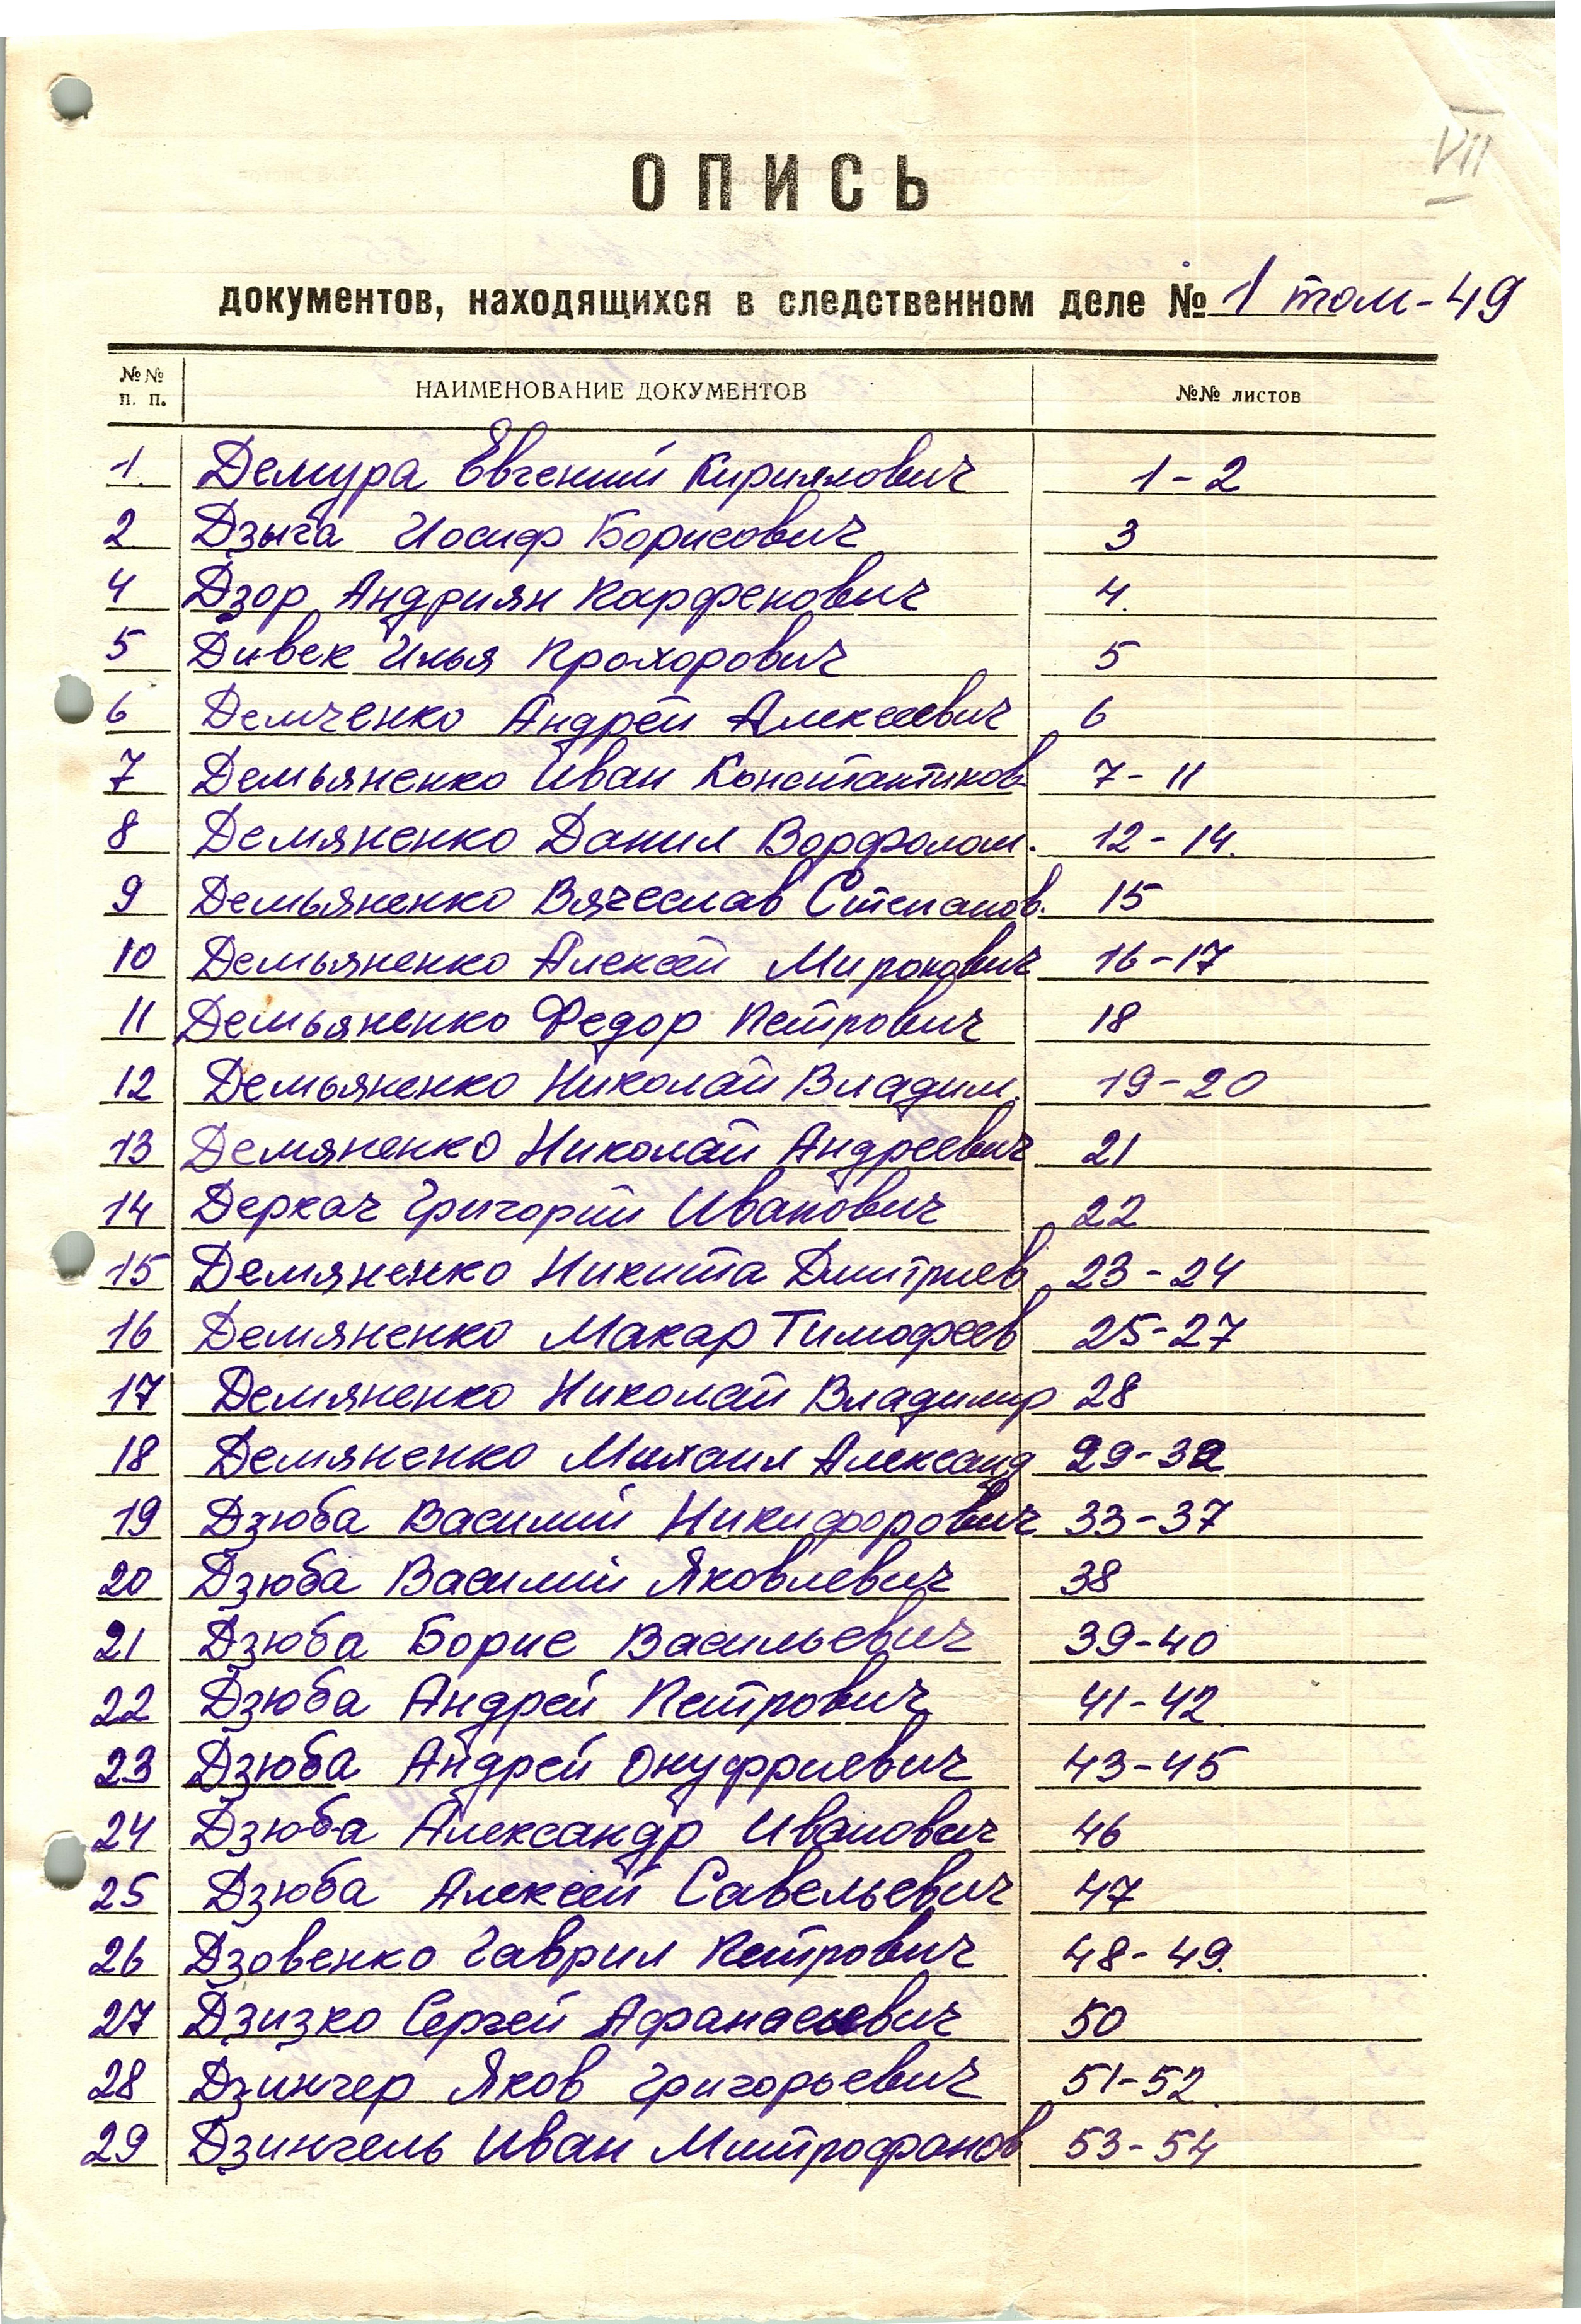 VII
ОПИСЬ
документов, находящихся в следственном деле № 1 том-49
№№ п. п. НАИМЕНОВАНИЕ ДОКУМЕНТОВ №№ листов
1. Демура Евгений Кириллович 1-2
2. Дзыга Иосиф Борисович 3
4 Дзор Андриян Карфенович 4.
5 Дивек Илья Прохорович 5
6 Демченко Андрей Алексеевич 6
7 Демьяненко Иван Константинов. 7-11
8 Демяненко Данил Ворфолом. 12-14.
9 Демьяненко Вячеслав Степанов. 15
10 Демьяненко Алексей Миронович 16-17
11 Демьяненко Федор Петрович 18
12 Демьяненко Николай Владим. 19-20
13 Демяненко Николай Андреевич 21
14 Деркач Григорий Иванович 22
15 Демяненко Никита Дмитриев 23-24
16 Демяненко Макар Тимофеев 25-27
17 Демяненко Николай Владимир 28
18 Демяненко Михаил Александ 29-32
19 Дзюба Василий Никифорович 33-37
20 Дзюба Василий Яковлевич 38
21 Дзюба Борис Васильевич 39-40
22 Дзюба Андрей Петрович 41-42
23 Дзюба Андрей Онуфриевич 43-45
24 Дзюба Александр Иванович 46
25 Дзюба Алексей Савельевич 47
26 Дзовенко Гаврил Петрович 48-49.
27 Дзизко Сергей Афанасиевич 50
28 Дзингер Яков Григорьевич 51-52
29 Дзингель Иван Митрофанов 53-54